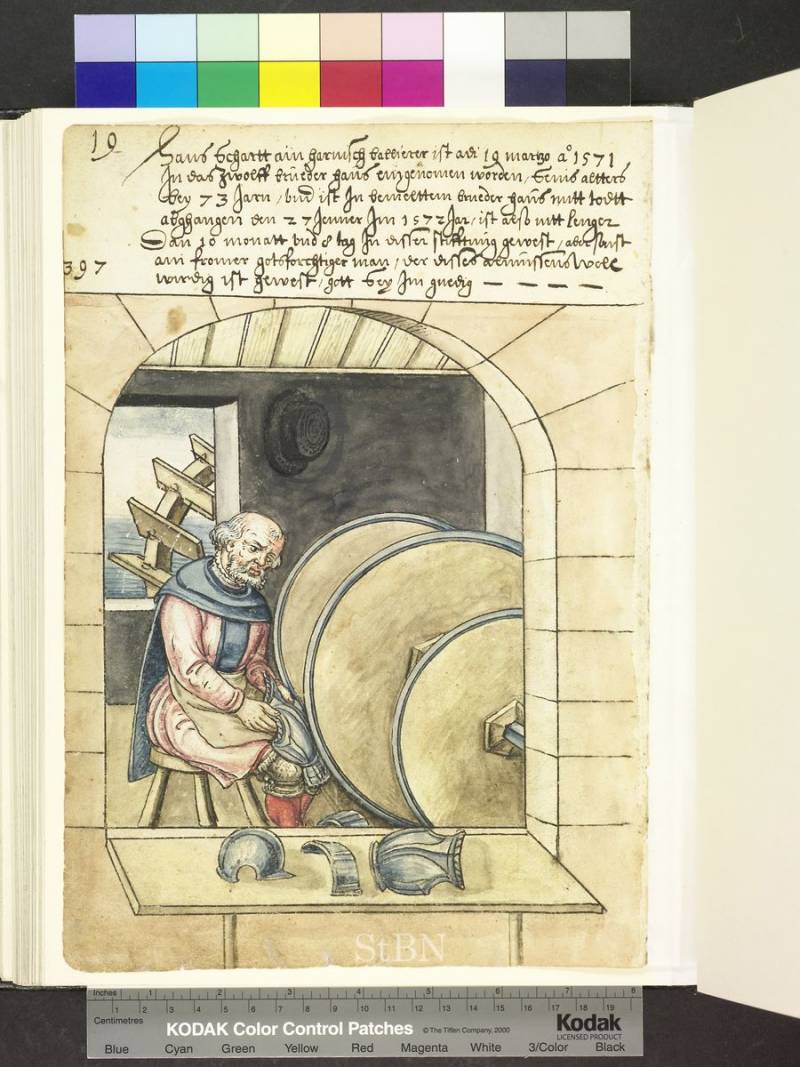 19
Hans Schartt ain harnisch ballierer ist adi 19 martzo a° 1571
In das zwölff brüeder haus eingenomen worden, seins altters
bey 73 Jarn, und ist In bemelttem brueder haus mitt todtt
abghangen den 27 Jenner Im 1572 Jar, ist also nitt lenger
Dan 10 monatt und 8 tag In disser stifftung gewest, aber sunst
397
ain fromer gotsforchtiger man, der disses almüssens woll
wirdig ist gewest, gott sey Im gnedig — — — —
StBN
Inches 1 2 3 4 5 6 7 8
Centimetres 1 2 3 4 5 6 7 8 9 10 11 12 13 14 15 16 17 18 19
KODAK Color Control Patches © The Tiffen Company, 2000 Kodak
LICENSED PRODUCT
Blue Cyan Green Yellow Red Magenta White 3/Color Black